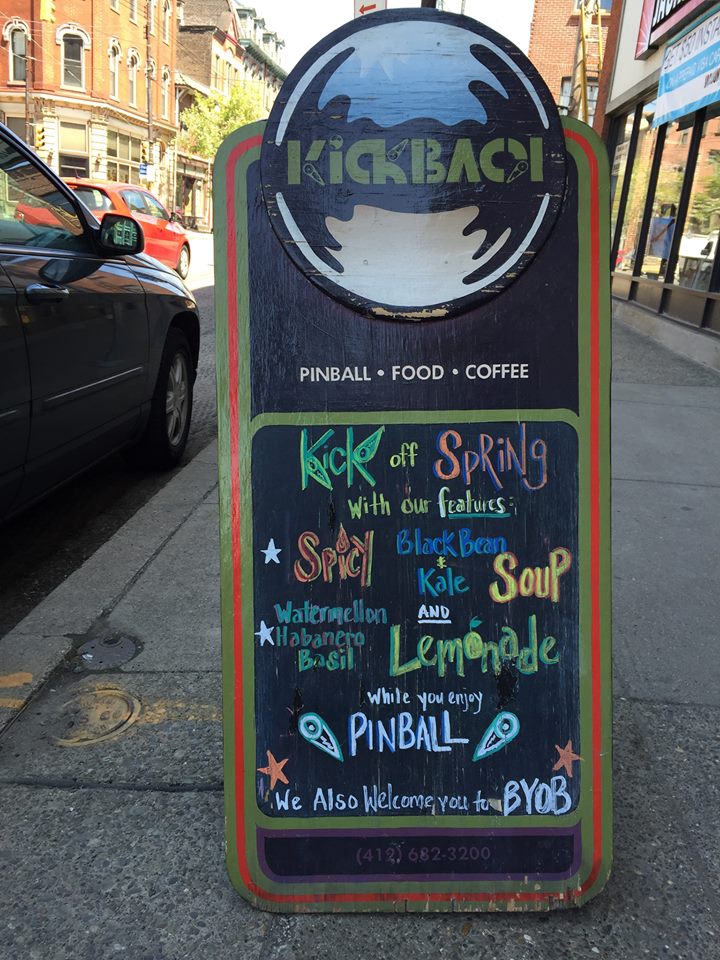 KICKBACK
PINBALL • FOOD • COFFEE
Kick off SPRiNg
with our features:
Spicy Black Bean
& Kale Soup
AND
Watermellon
Habanero
Basil
Lemonade
while you enjoy
PINBALL
We Also Welcome you to BYOB
(412) 682-3200